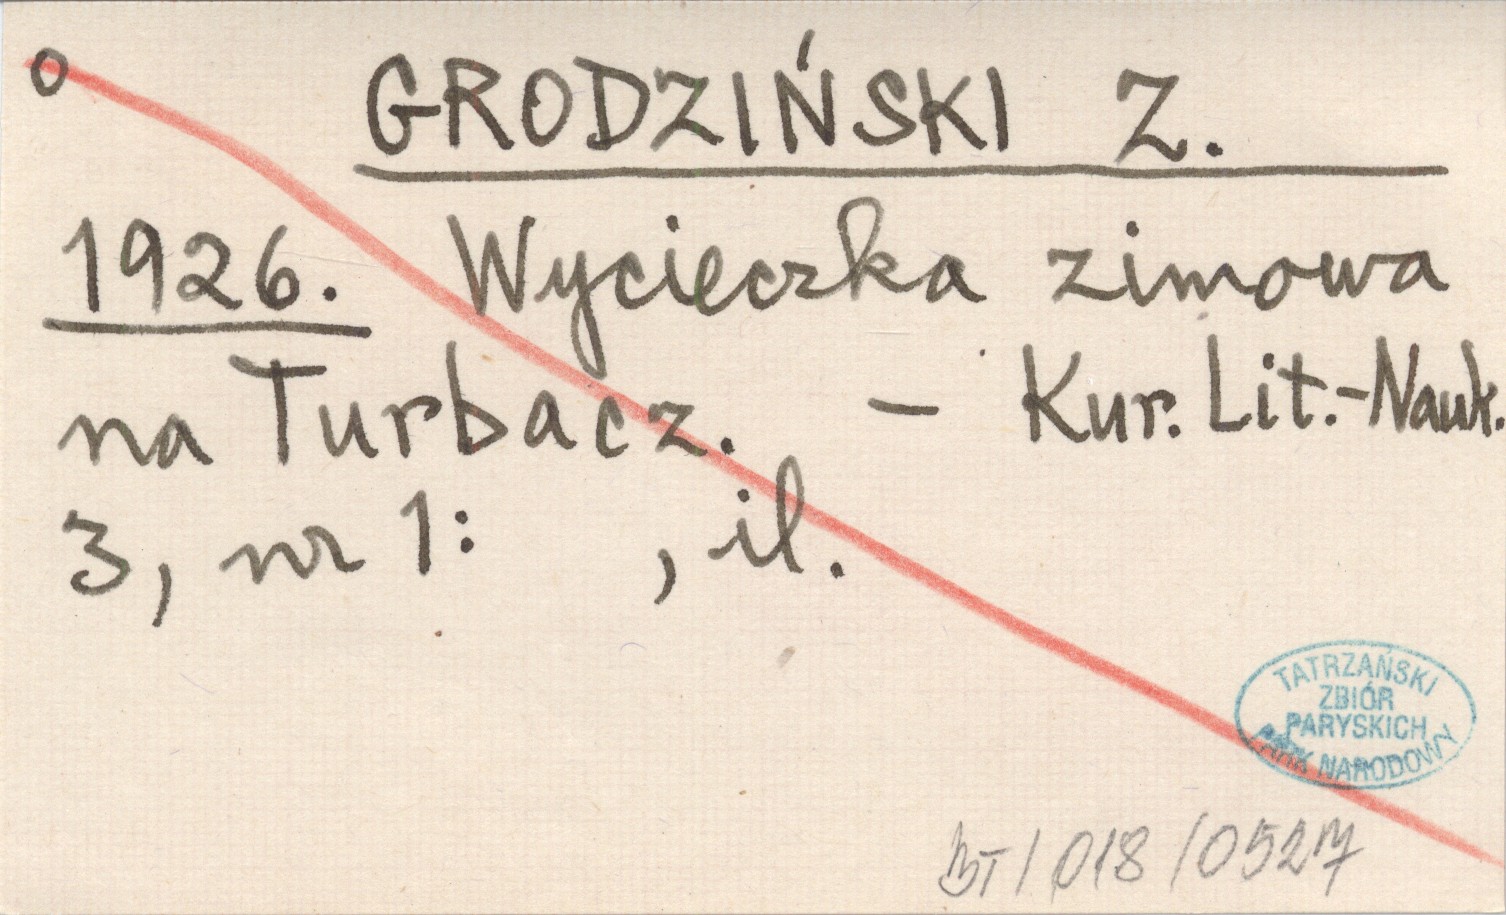 o GRODZIŃSKI Z.
1926. Wycieczka zimowa
na Turbacz. – Kur. Lit.-Nauk.
3, nr 1: , il.
TATRZAŃSKI
ZBIÓR
PARYSKICH
PARK NARODOWY
BT/018/0527